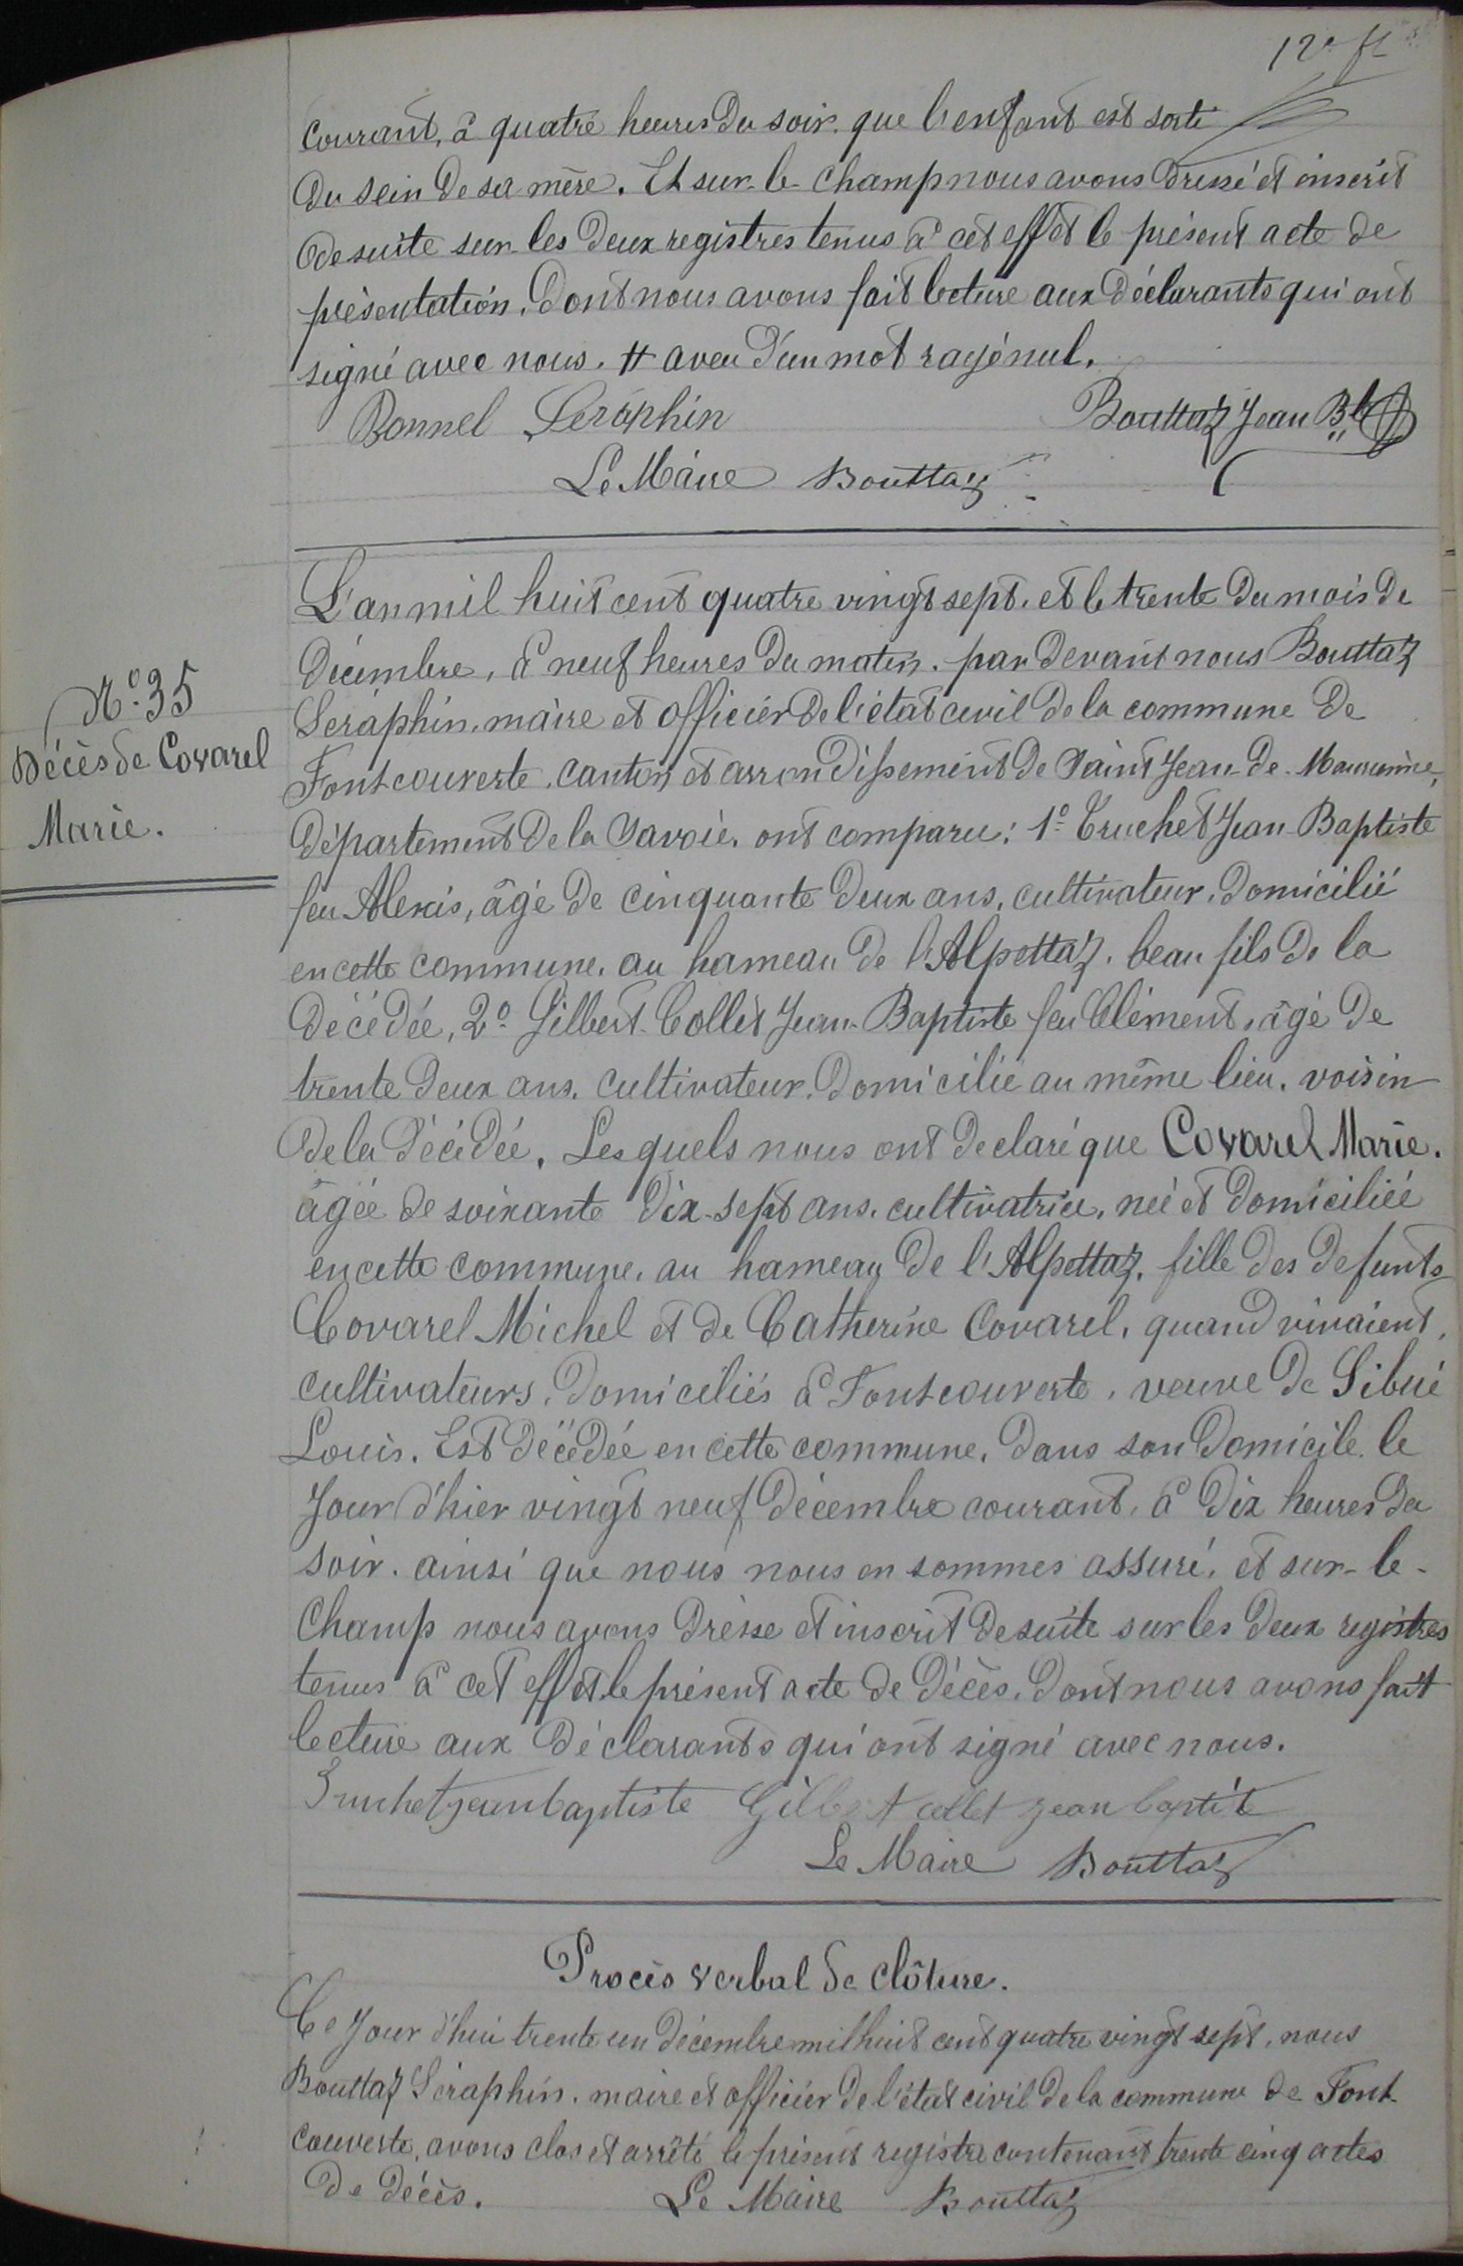 12e ft
courant, à quatre heures du soir. que l'enfant est sorti
du sein de sa mère. Et sur-le-champ nous avons dressé et inscrit
de suite sur les deux registres tenus à cet effet le présent acte de
présentation. Dont nous avons fait lecture aux déclarants qui ont
signé avec nous. # aveu d'un mot rayé nul.
Bonnel Seraphin Bouttaz Jean Bte
Le Maire Bouttaz
L'an mil huit cent quatre vingt sept. et le trente du mois de
décembre, à neuf heures du matin. par devant nous Bouttaz
Séraphin. maire et officier de l'état civil de la commune de
Fontcouverte. canton et arrondissement de Saint Jean-de-Maurienne,
département de la Savoie. ont comparu: 1º Truchet Jean-Baptiste
feu Alexis, âgé de cinquante deux ans, cultivateur. domicilié
en cette commune. au hameau de l'Alpettaz. beau fils de la
décédée, 2º Gilbert-Collet Jean-Baptiste feu Clément, âgé de
trente deux ans. cultivateur. domicilié au même lieu. voisin
de la décédée. Lesquels nous ont declaré que Covarel Marie.
âgée de soixante dix-sept ans. cultivatrice, neé et domiciliée
en cette commune. au hameau de l'Alpettaz. fille des defunts
Covarel Michel et de Catherine Covarel, quand vivaient,
cultivateurs, domiciliés à Fontcouverte, veuve de Sibué
Louis. Est décédée en cette commune. dans son domicile. le
Jour d'hier vingt neuf décembre courant. à dix heures du
soir. ainsi que nous nous en sommes assuré. et sur-le-
champ nous avons dressé et inscrit de suite sur les deux registres
tenus à cet effet le présent acte de décès. Dont nous avons fait
lecture aux déclarants qui ont signé avec nous.
Truchet jean baptiste Gilbert collet jean baptiste
Le Maire Bouttaz
Nº 35
Décès de Covarel
Marie.
Procès verbal de clôture.
Ce Jour d'hui trente un décembre mil huit cent quatre vingt sept, nous
Bouttaz Séraphin. maire et officier de l'état civil de la commune de Font-
couverte, avons clos et arrêté le présent registre contenant trente cinq actes
de décès. Le Maire Bouttaz